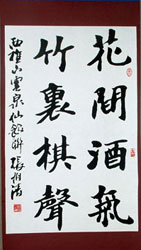 花間酒氣
竹裏棋聲
西樵山雲泉仙館聯 張